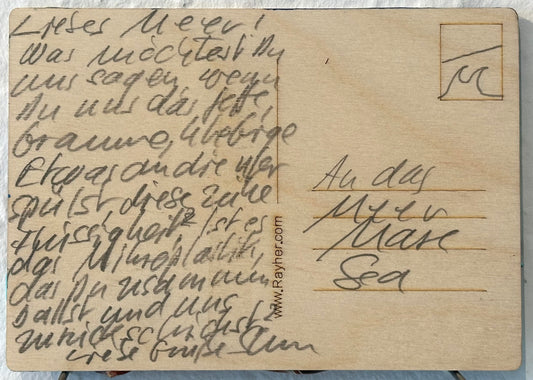 Lieses Meer!
Was möchtest Du
uns sagen, wenn
Du uns das fette,
braune, klebrige
Etwas an die Ufer
spülst, diese zähe
Flüssigkeit? Ist es
das Mikroplastik,
das Du zusammen
ballst und uns
zurückschickst?
Liebe Grüße
An das
Meer
Mare
Sea
www.Rayher.com